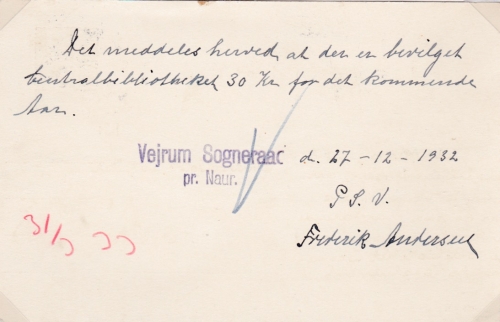 Det meddeles herved, at der er bevilget
Centralbibliotheket 30 Kr for det kommende
Aar.
Vejrum Sogneraad d. 27-12-1932
pr. Naur.
P. S. V.
Frederik Andersen
31/3 33